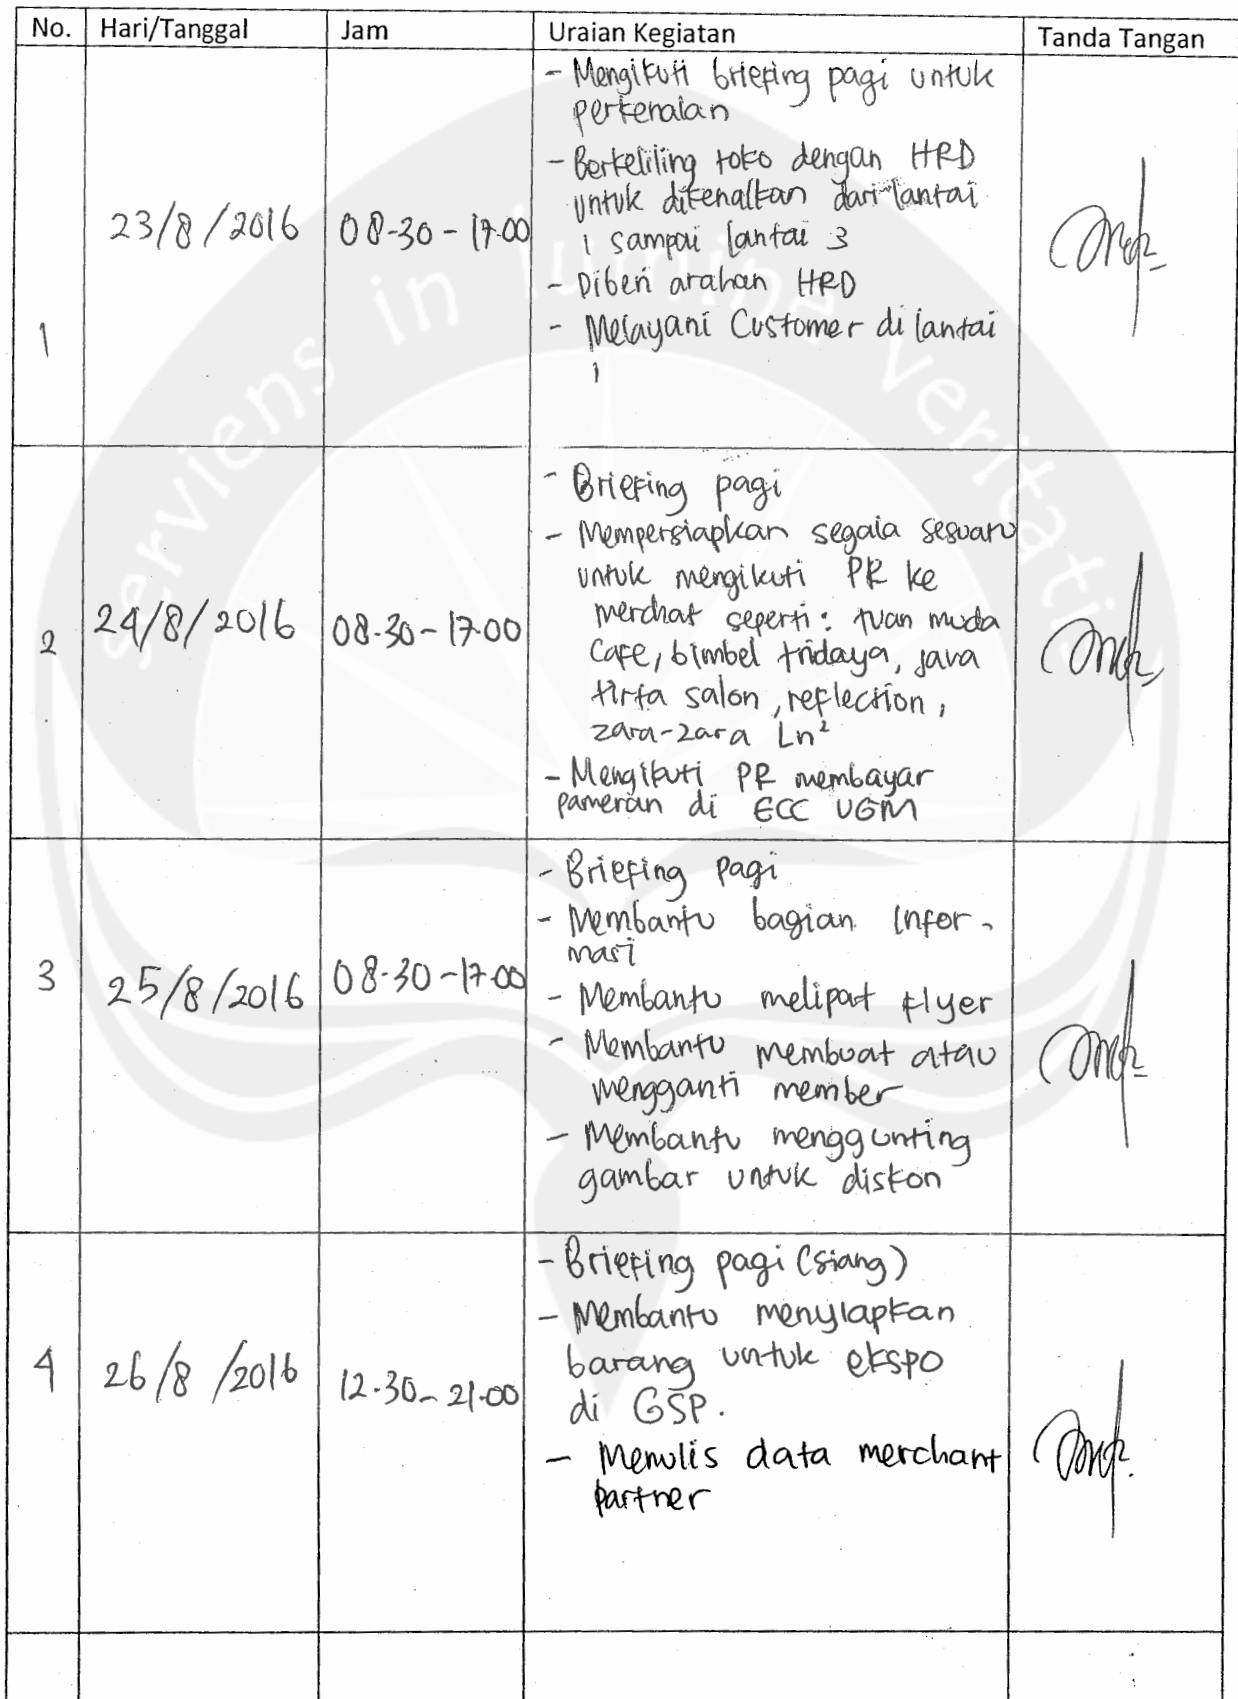 No. Hari/Tanggal Jam Uraian Kegiatan Tanda Tangan
1 23/8/2016 08-30-17.00
- Mengikuti briefing pagi untuk
perkenalan
- Berkeliling toko dengan HRD
untuk dikenalkan dari lantai
1 sampai lantai 3
- Diberi arahan HRD
- Melayani Customer di lantai
1
2 24/8/2016 08.30-17.00
- Briefing pagi
- Mempersiapkan segala sesuatu
untuk mengikuti PR ke
merchat seperti: tuan muda
Cafe, bimbel tridaya, java
tirta salon, reflection,
zara-zara Ln²
- Mengikuti PR membayar
pameran di ECC UGM
3 25/8/2016 08.30-17.00
- Briefing pagi
- Membantu bagian infor-
masi
- Membantu melipat flyer
- Membantu membuat atau
mengganti member
- Membantu menggunting
gambar untuk diskon
4 26/8/2016 12.30-21.00
- Briefing pagi (siang)
- Membantu menyiapkan
barang untuk ekspo
di GSP.
- Menulis data merchant
partner
serviens in lumine veritatis